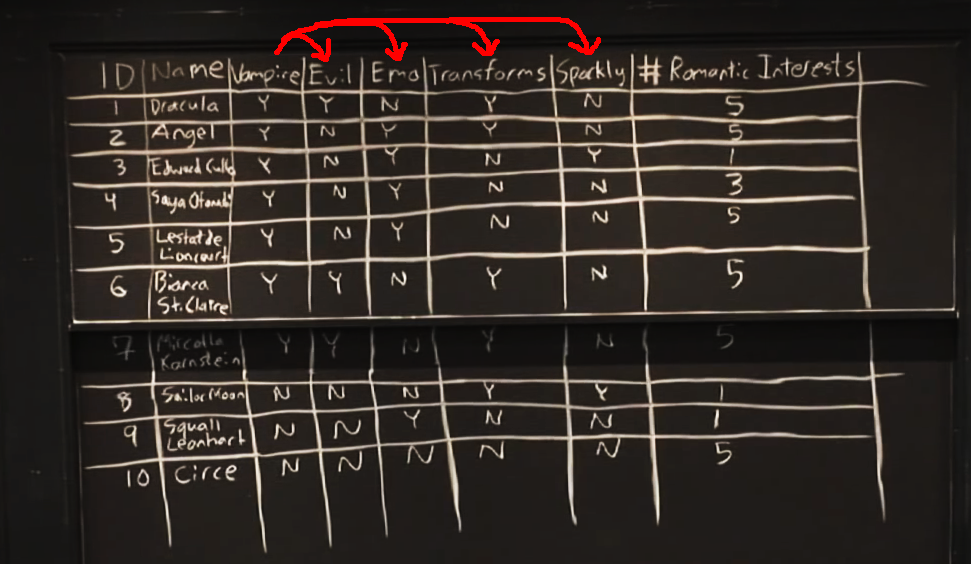 ID Name Vampire Evil Emo Transforms Sparkly # Romantic Interests
1 Dracula Y Y N Y N 5
2 Angel Y N Y Y N 5
3 Edward Culle Y N Y N Y 1
4 Saya Y N Y N N 3
5 Lestat de Lioncourt Y N Y N N 5
6 Bianca St. Claire Y Y N Y N 5
7 Mircalla Karnstein Y Y N Y N 5
8 Sailor Moon N N N Y Y 1
9 Squall Leonhart N N Y N N 1
10 Circe N N N N N 5